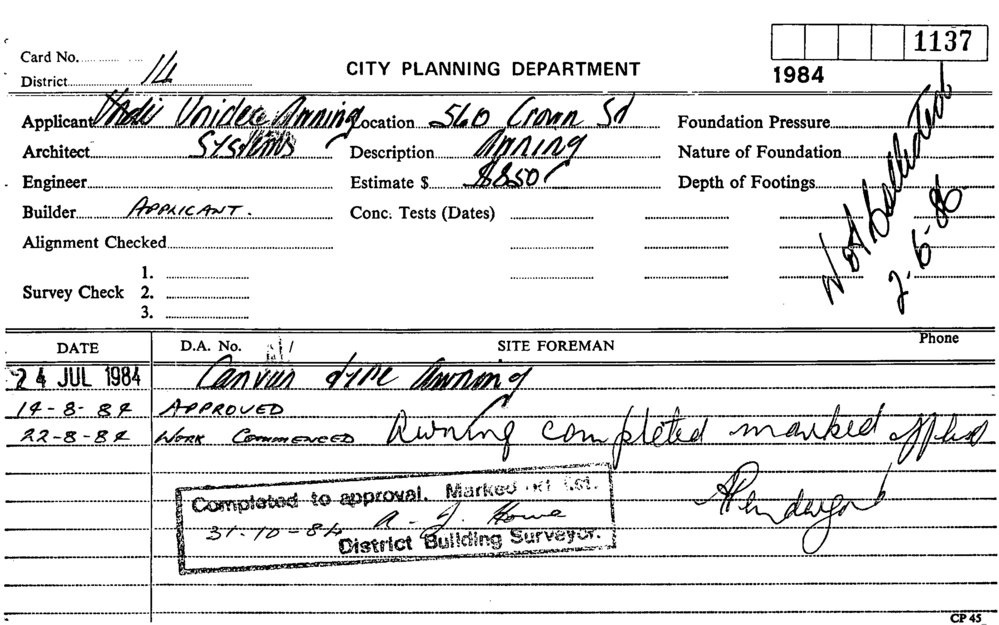 Card No.
1137
District 14
CITY PLANNING DEPARTMENT
1984
Applicant Unidec Awning Systems
Location 560 Crown St
Foundation Pressure
Architect
Description Awning
Nature of Foundation
Engineer
Estimate $ $850
Depth of Footings
Builder APPLICANT.
Conc. Tests (Dates)
Not
2-6-86
Alignment Checked
Survey Check
1.
2.
3.
DATE
D.A. No.
SITE FOREMAN
Phone
24 JUL 1984
Canvas type Awning
14-8-84 APPROVED
22-8-84 WORK COMMENCED Awning completed marked off list
Completed to approval. Marked off list.
31-10-84 A. J. Howe
District Building Surveyor.
CP 45